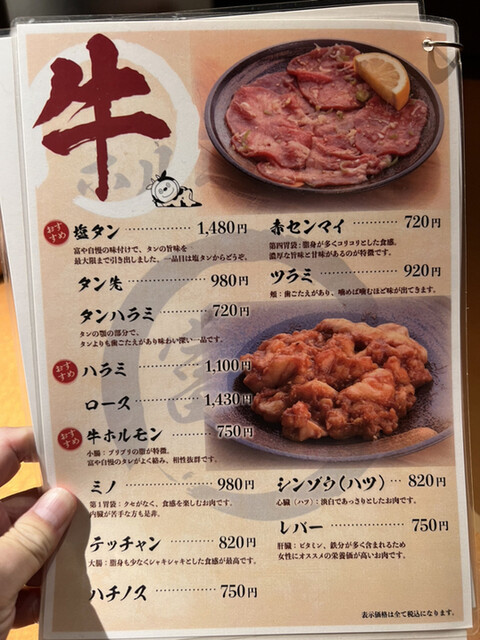 牛
おすすめ 塩タン 1,480円
富や自慢の味付けで、タンの旨味を
最大限まで引き出しました、一品目は塩タンからどうぞ。
タン先 980円
タンハラミ 720円
タンの顎の部分で、
タンよりも歯ごたえがあり味わい深い一品です。
おすすめ ハラミ 1,100円
ロース 1,430円
おすすめ 牛ホルモン 750円
小腸:プリプリの脂が特徴。
富や自慢のタレがよく絡み、相性抜群です。
ミノ 980円
第1胃袋:クセがなく、食感を楽しむお肉です。
内臓が苦手な方も是非。
テッチャン 820円
大腸:脂身も少なくシャキシャキとした食感が最高です。
ハチノス 750円
赤センマイ 720円
第四胃袋:脂身が多くコリコリとした食感。
濃厚な旨味と甘味があるのが特徴です。
ツラミ 920円
頬:歯ごたえがあり、噛めば噛むほど味が出てきます。
シンゾウ(ハツ) 820円
心臓(ハツ):淡白であっさりとしたお肉です。
レバー 750円
肝臓:ビタミン、鉄分が多く含まれるため
女性にオススメの栄養価が高いお肉です。
表示価格は全て税込になります。